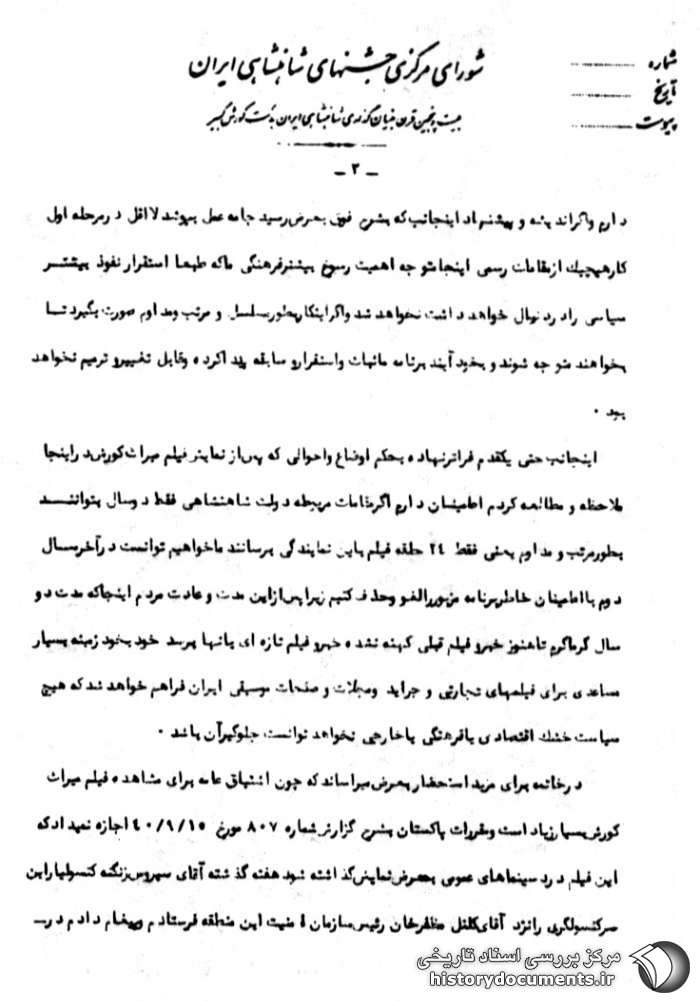 شورای مرکزی جشنهای شاهنشاهی ایران
بیست و پنجمین قرن بنیان گذاری شاهنشاهی ایران بدست کورش کبیر
شماره
تاریخ
پیوست
ـ ۲ ـ
دارم واگراندیشه و پیشنهاد اینجانب که بشرح فوق بعرض رسید جامه عمل بپوشد لااقل در مرحله اول
کار هیچیک از مقامات رسمی اینجا متوجه اهمیت رسوخ بیشتر فرهنگی ما که طبعا استقرار نفوذ بیشتر
سیاسی را در دنبال خواهد داشت نخواهد شد و اگر اینکار بطور مسلسل و مرتب و مداوم صورت بگیرد تا
بخواهند متوجه شوند و بخود آیند برنامه ما ثبات و استقرار و سابقه پیدا کرده و قابل تغییر و ترمیم نخواهد
بود .
اینجانب حتی یکقدم فراتر نهاده بحکم اوضاع و احوالی که پس از نمایش فیلم میراث کورش در اینجا
ملاحظه و مطالعه کردم اطمینان دارم اگر مقامات مربوطه دولت شاهنشاهی فقط دو سال بتوانند
بطور مرتب و مداوم یعنی فقط ۲۴ حلقه فیلم باین نمایندگی برسانند ما خواهیم توانست در آخر سال
دوم با اطمینان خاطر برنامه مزبور را لغو و حذف کنیم زیرا پس از این مدت و عادت مردم اینجا که مدت دو
سال گرماگرم تا هنوز خبر و فیلم قبلی کهنه نشده خبر و فیلم تازه ای بآنها برسد خود بخود زمینه بسیار
مساعدی برای فیلمهای تجارتی و جراید و مجلات و صفحات موسیقی ایران فراهم خواهد شد که هیچ
سیاست خشک اقتصادی یا فرهنگی یا خارجی نخواهد توانست جلوگیر آن باشد .
در خاتمه برای مزید استحضار بعرض میرساند که چون اشتیاق عامه برای مشاهده فیلم میراث
کورش بسیار زیاد است و مقررات پاکستان بشرح گزارش شماره ۸۰۷ مورخ ۴۰/۹/۱۵ اجازه نمیداد که
این فیلم در سینماهای عمومی بمعرض نمایش گذاشته شود هفته گذشته آقای سیروس زنگنه کنسولیار این
سرکنسولگری را نزد آقای کلنل مظفرخان رئیس سازمان امنیت این منطقه فرستادم و پیغام دادم در
مرکز بررسی اسناد تاریخی
historydocuments.ir